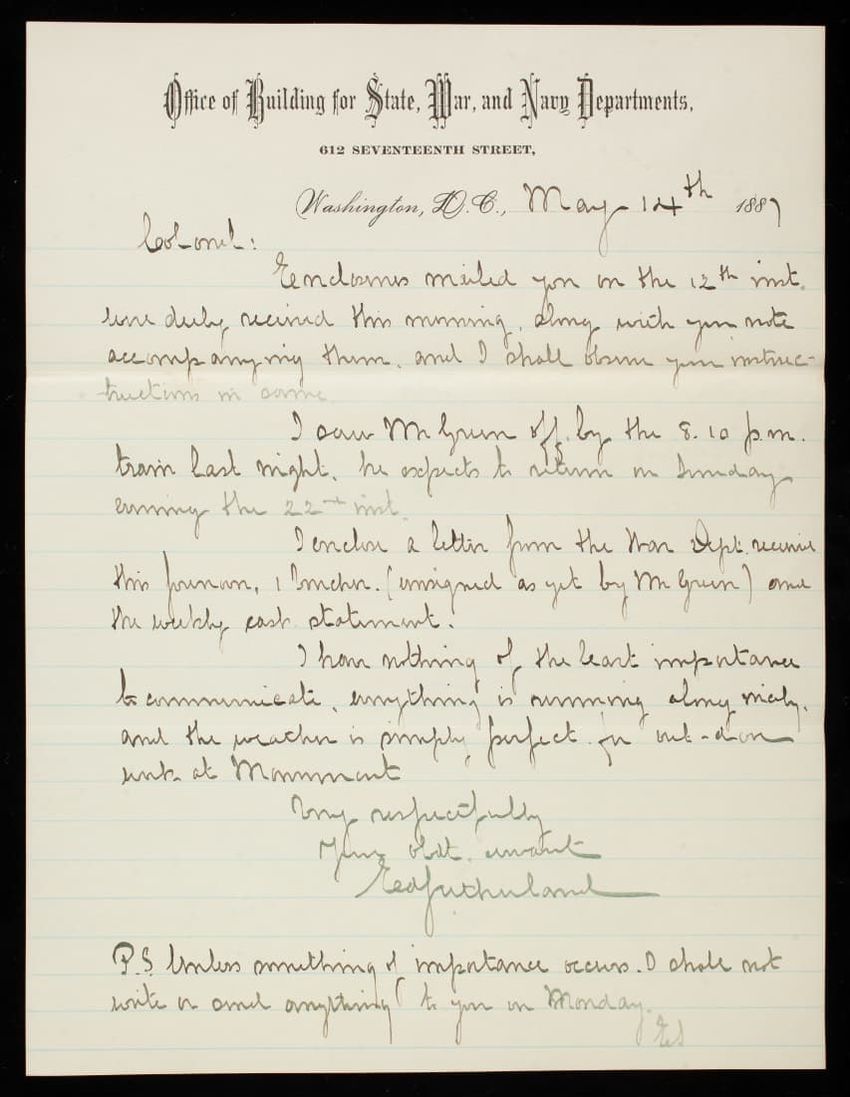 Office of Building for State, War, and Navy Departments,
612 SEVENTEENTH STREET,
Washington, D.C., May 14th 1887
Colonel:
Enclosures mailed you on the 12th inst.
were duly received this morning, along with your note
accompanying them, and I shall observe your instruc-
tructions in same.
I saw Mr Green off by the 8.10 p.m.
train last night, he expects to return on Sunday
evening the 22nd inst.
I enclose a letter from the War Dept. received
this forenoon, 1 Voucher. (unsigned as yet by Mr Green) and
the weekly cash statement.
I have nothing of the least importance
to communicate, everything is running along nicely,
and the weather is simply perfect for out-door
work at Monument
Very respectfully
Your obdt. servant
Ed Sutherland
P.S. Unless something of importance occurs. I shall not
write or send anything to you on Monday.
ES